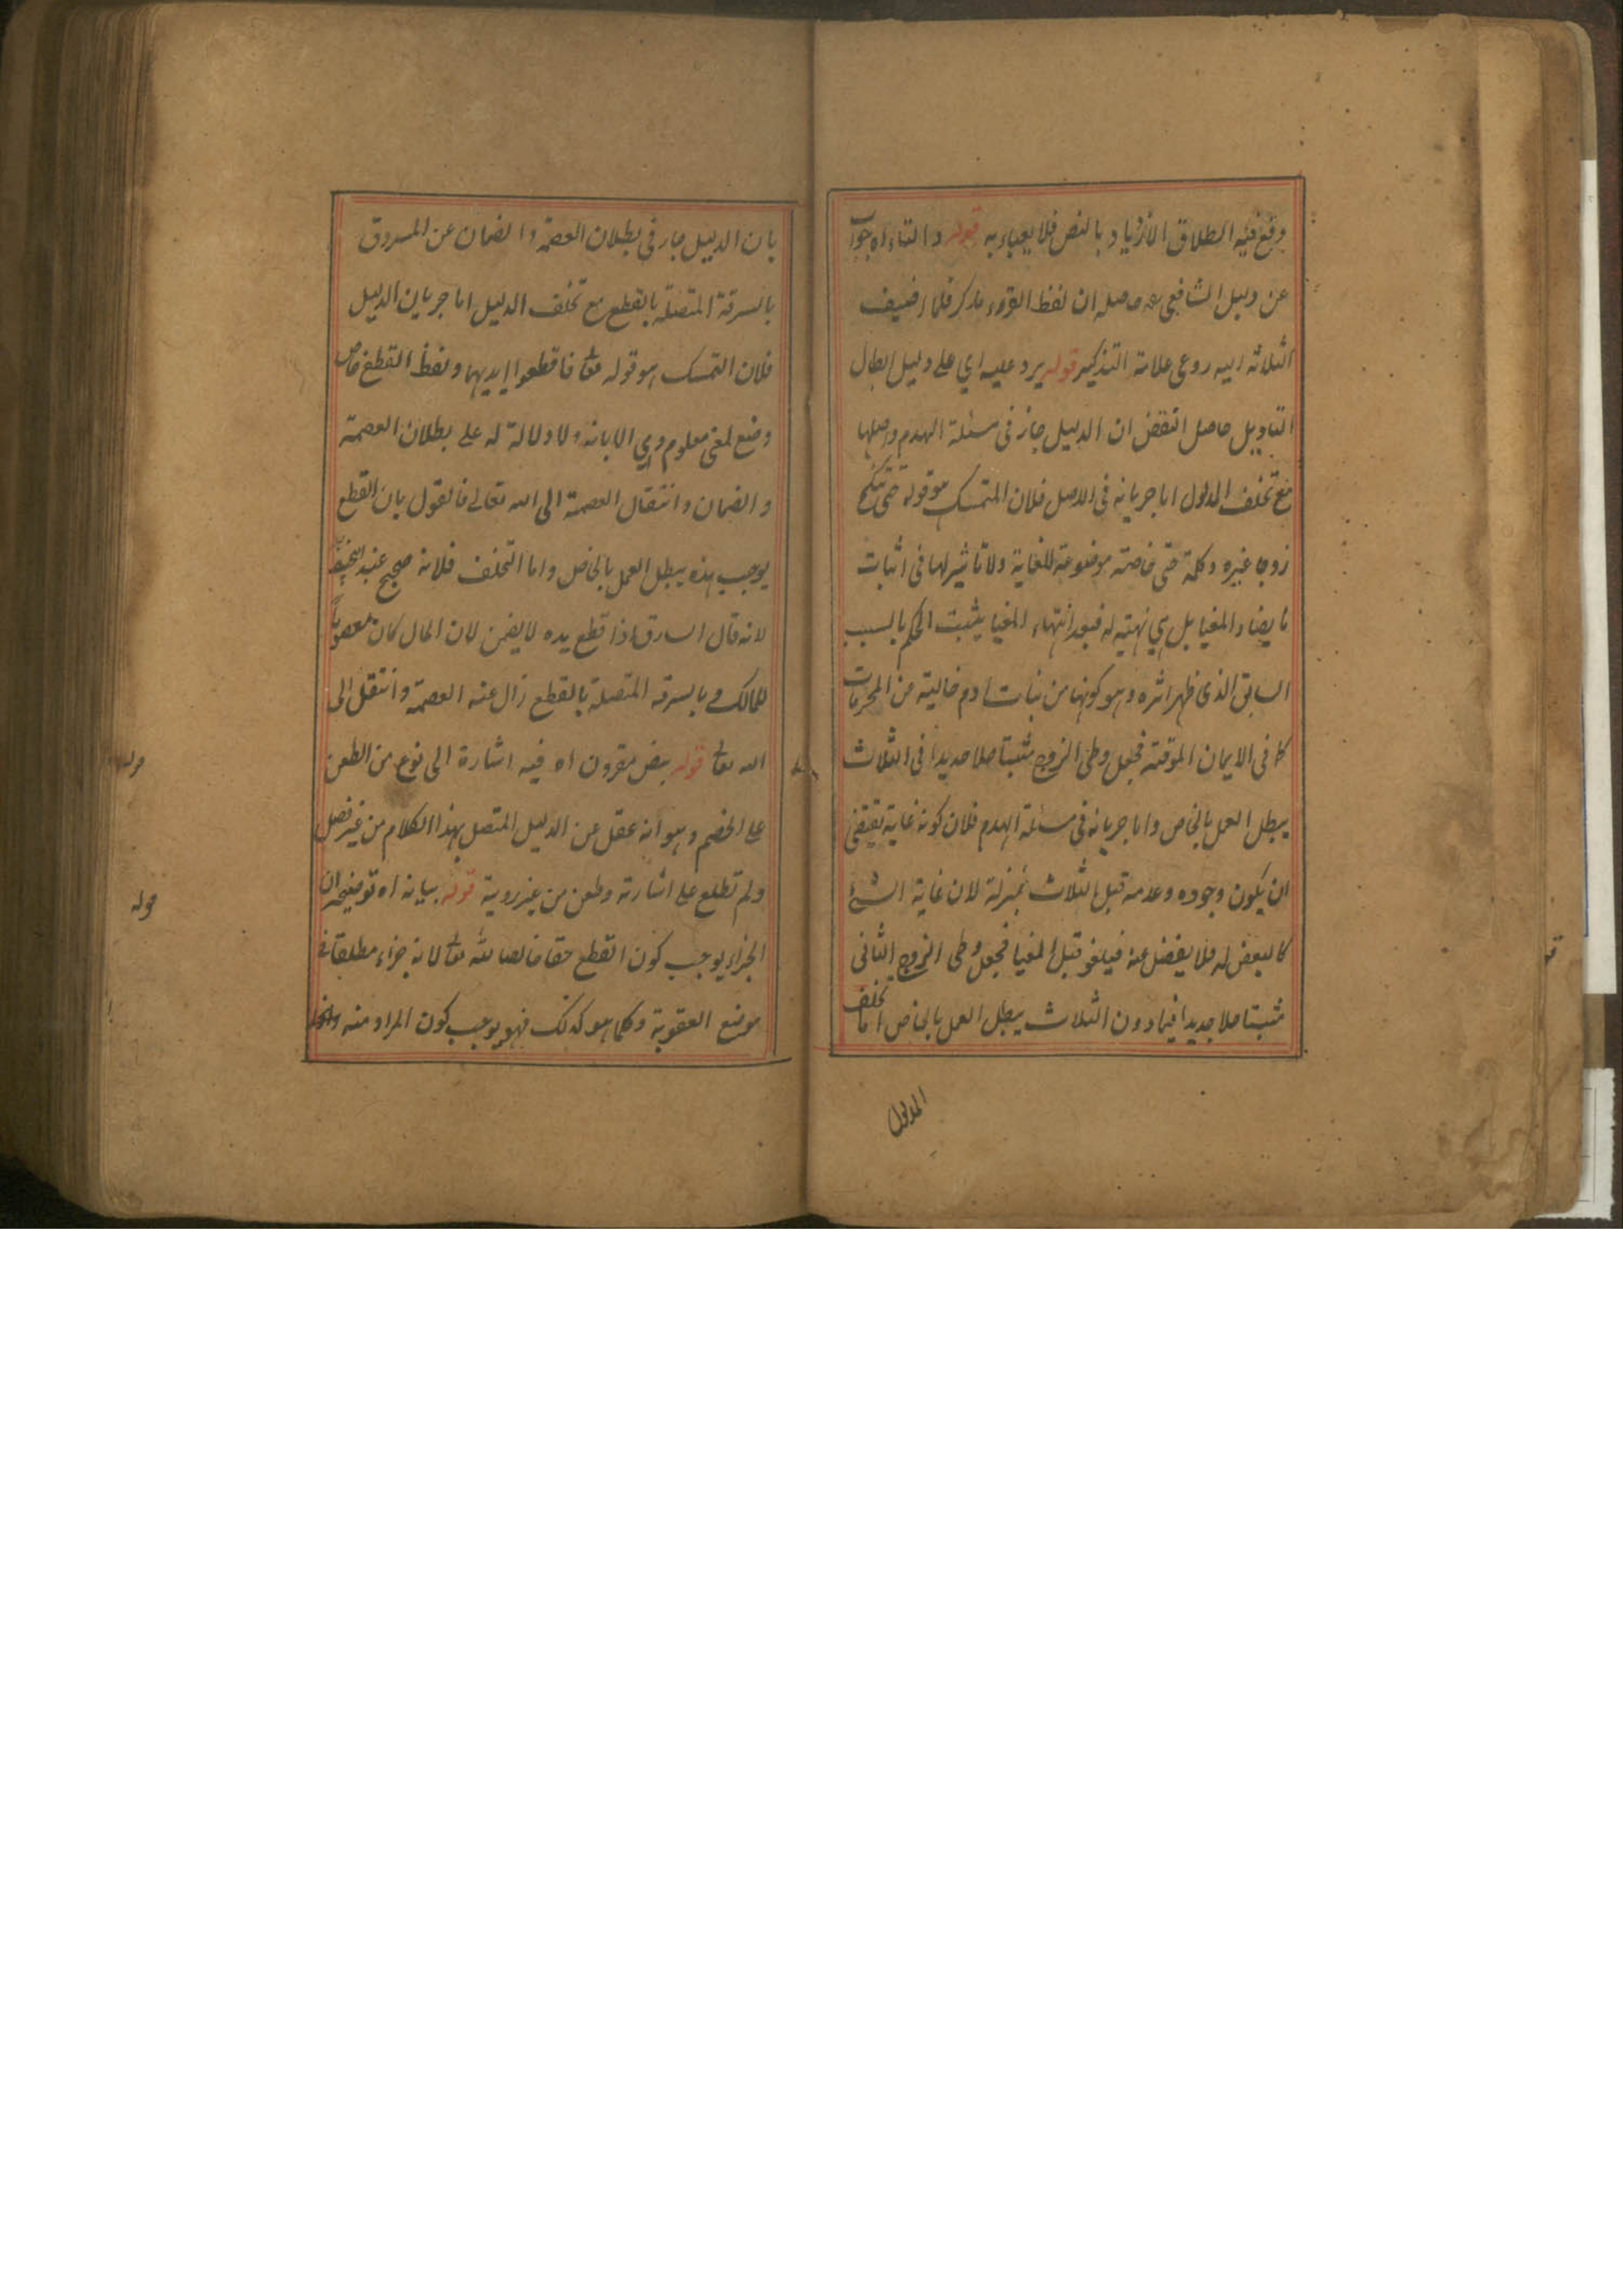 وقع فيه الطلاق الازدياد بالنص فلا يعباء به قوله والتاء اه جواب
عن دليل الشافعي رحمه حاصله ان لفظ القروء مذكر فلما اضيف
الثلاثة اليه روعي علامة التذكير قوله يرد عليه اي على دليل ابطال
التاويل حاصل النقض ان الدليل جار في مسئلة الهدم واصلها
مع تخلف المدلول اما جريانه في الاصل فلان المتمسك هو قوله حتى تنكح
زوجا غيره وكلمة حتى خاصة موضوعة للغاية ولا تاثير لها في اثبات
ما يضاد المغيا بل هي نهية له فبعد انتهاء المغيا يثبت الحكم بالسبب
السابق الذى ظهر اثره وهو كونها من بنات ادم خالية من المحرمات
كما في الايمان الموقتة فجعل وطي الزوج مثبتا حلا جديدا في الثلاث
يبطل العمل بالخاص واما جريانه في مسئلة الهدم فلان كونه غاية يقتضي
ان يكون وجوده وعدمه قبل الثلاث بمنزلة لان غاية الشئ
كالبعض له فلا يفضل عنه فيلغو قبل المغيا فجعل وطي الزوج الثاني
مثبتا حلا جديدا فيما دون الثلاث يبطل العمل بالخاص اما تخلف
المدلول
بان الدليل جار في بطلان العصمة والضمان عن المسروق
بالسرقة المتصلة بالقطع مع تخلف الدليل اما جريان الدليل
فلان التمسك هو قوله تعا فاقطعوا ايديهما ولفظ القطع خاص
وضع لمعنى معلوم وهي الابانة ولا دلالة له على بطلان العصمة
والضمان وانتقال العصمة الى الله تعالى فالقول بان القطع
يوجب هذه يبطل العمل بالخاص واما التخلف فلانه صحيح عند
لانه قال السارق اذا قطع يده لا يضمن لان المال كان معصوما
للمالك وبالسرقة المتصلة بالقطع زال عنه العصمة وانتقل الى
الله تعا قوله بنص مقرون اه فيه اشارة الى نوع من الطعن
على الخصم وهو انه غفل عن الدليل المتصل بهذا الكلام من غير فصل
ولم تطلع على اشارته وطعن من غير روية قوله بيانه اه توضيحه ان
الجزاء يوجب كون القطع حقا خالصا لله تعا لانه جزاء مطلقا في
موضع العقوبة وكلما هو كذلك فهو يوجب كون المراد منه
قوله
قوله